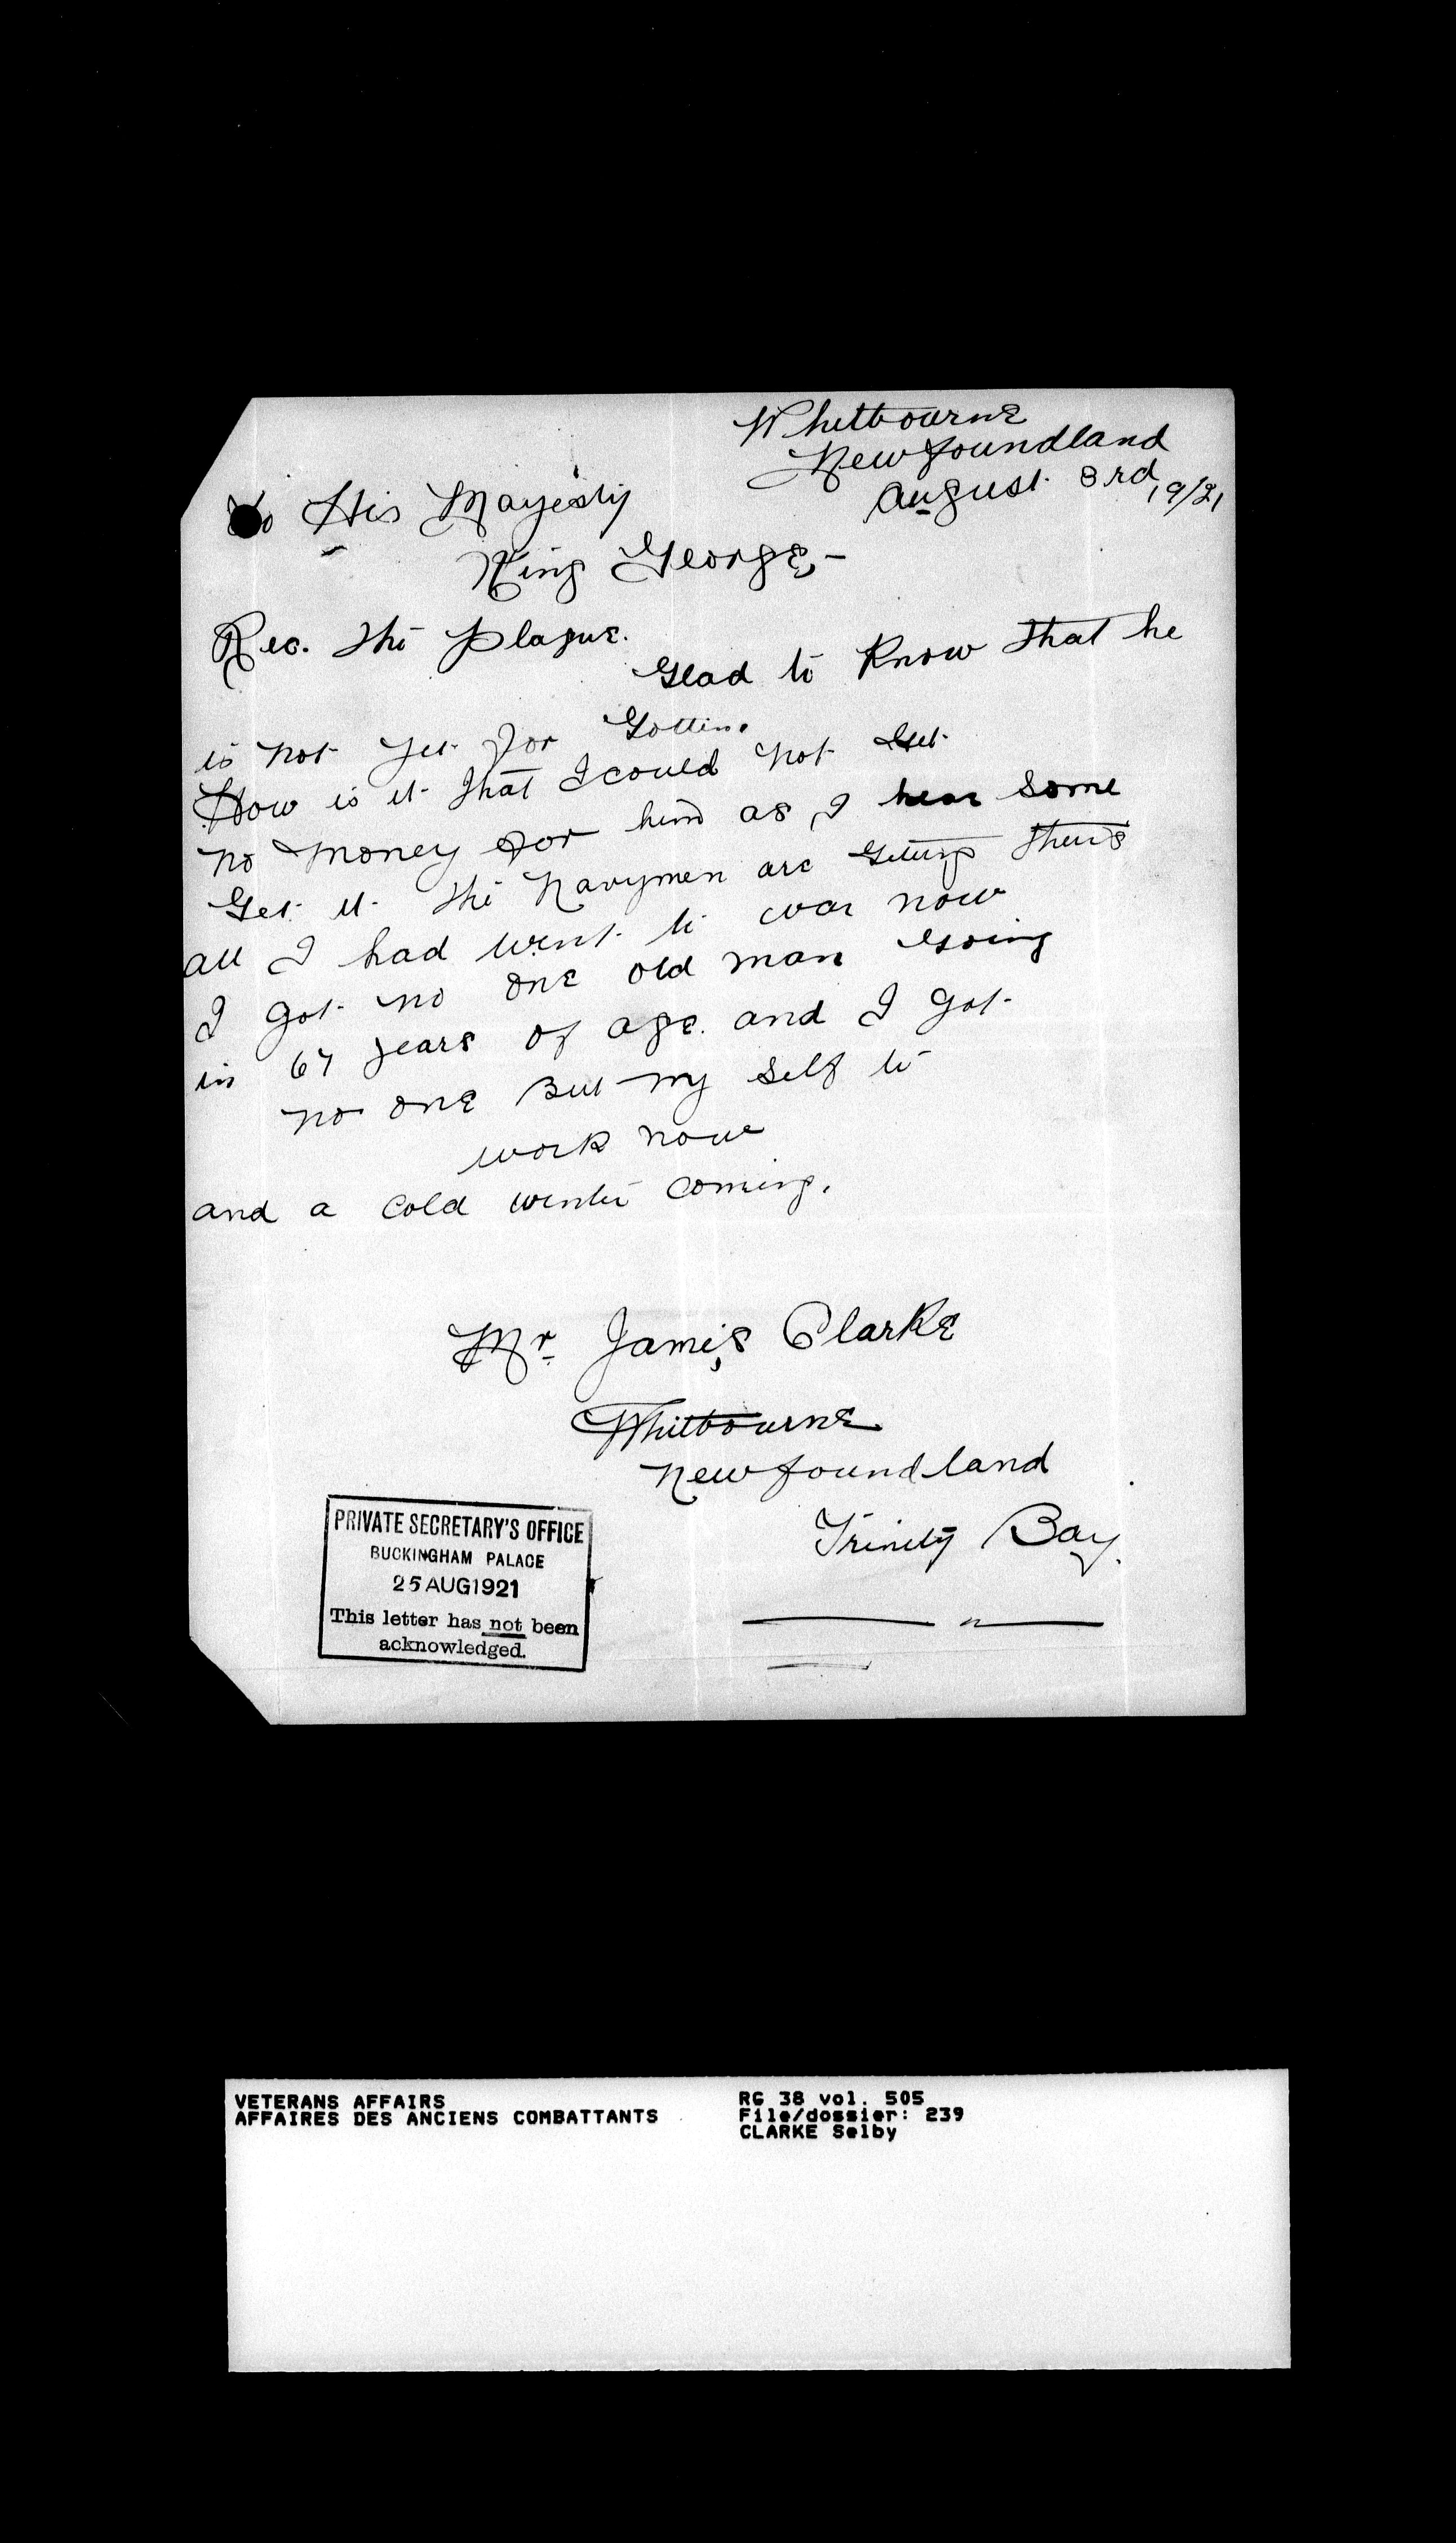 Whitbourne
Newfoundland
August 3rd, 19/21
To His Mayesty
King George,-
Rec. the Plaque.
Glad to Know that he
is not yet for Gotten.
How is it that I could not Get
no money for him as I hear Some
Get it the Navymen are Getting theirs
all I had went to war now
I got no one old man Going
in 67 years of age. and I got
no one But my self to
work now
and a Cold winter Coming.
Mr James Clarke
Whitbourne
Newfoundland
Trinity Bay.
PRIVATE SECRETARY'S OFFICE
BUCKINGHAM PALACE
25 AUG 1921
This letter has not been
acknowledged.
VETERANS AFFAIRS
AFFAIRES DES ANCIENS COMBATTANTS
RG 38 vol. 505
File/dossier: 239
CLARKE Selby